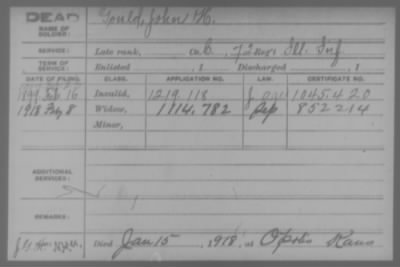 DEAD
NAME OF SOLDIER: Gould, John H.
SERVICE: Late rank, Co. C. 72 Reg't Ill. Inf.
TERM OF SERVICE: Enlisted , 1 Discharged , 1
DATE OF FILING. CLASS. APPLICATION NO. LAW. CERTIFICATE NO.
Feb 16 Invalid, 1219.118 1045.420
1918 Feby 8 Widow, 1114.782 852214
Minor,
ADDITIONAL SERVICES:
REMARKS:
Died Jan 15, 1918, at Opolis Kans